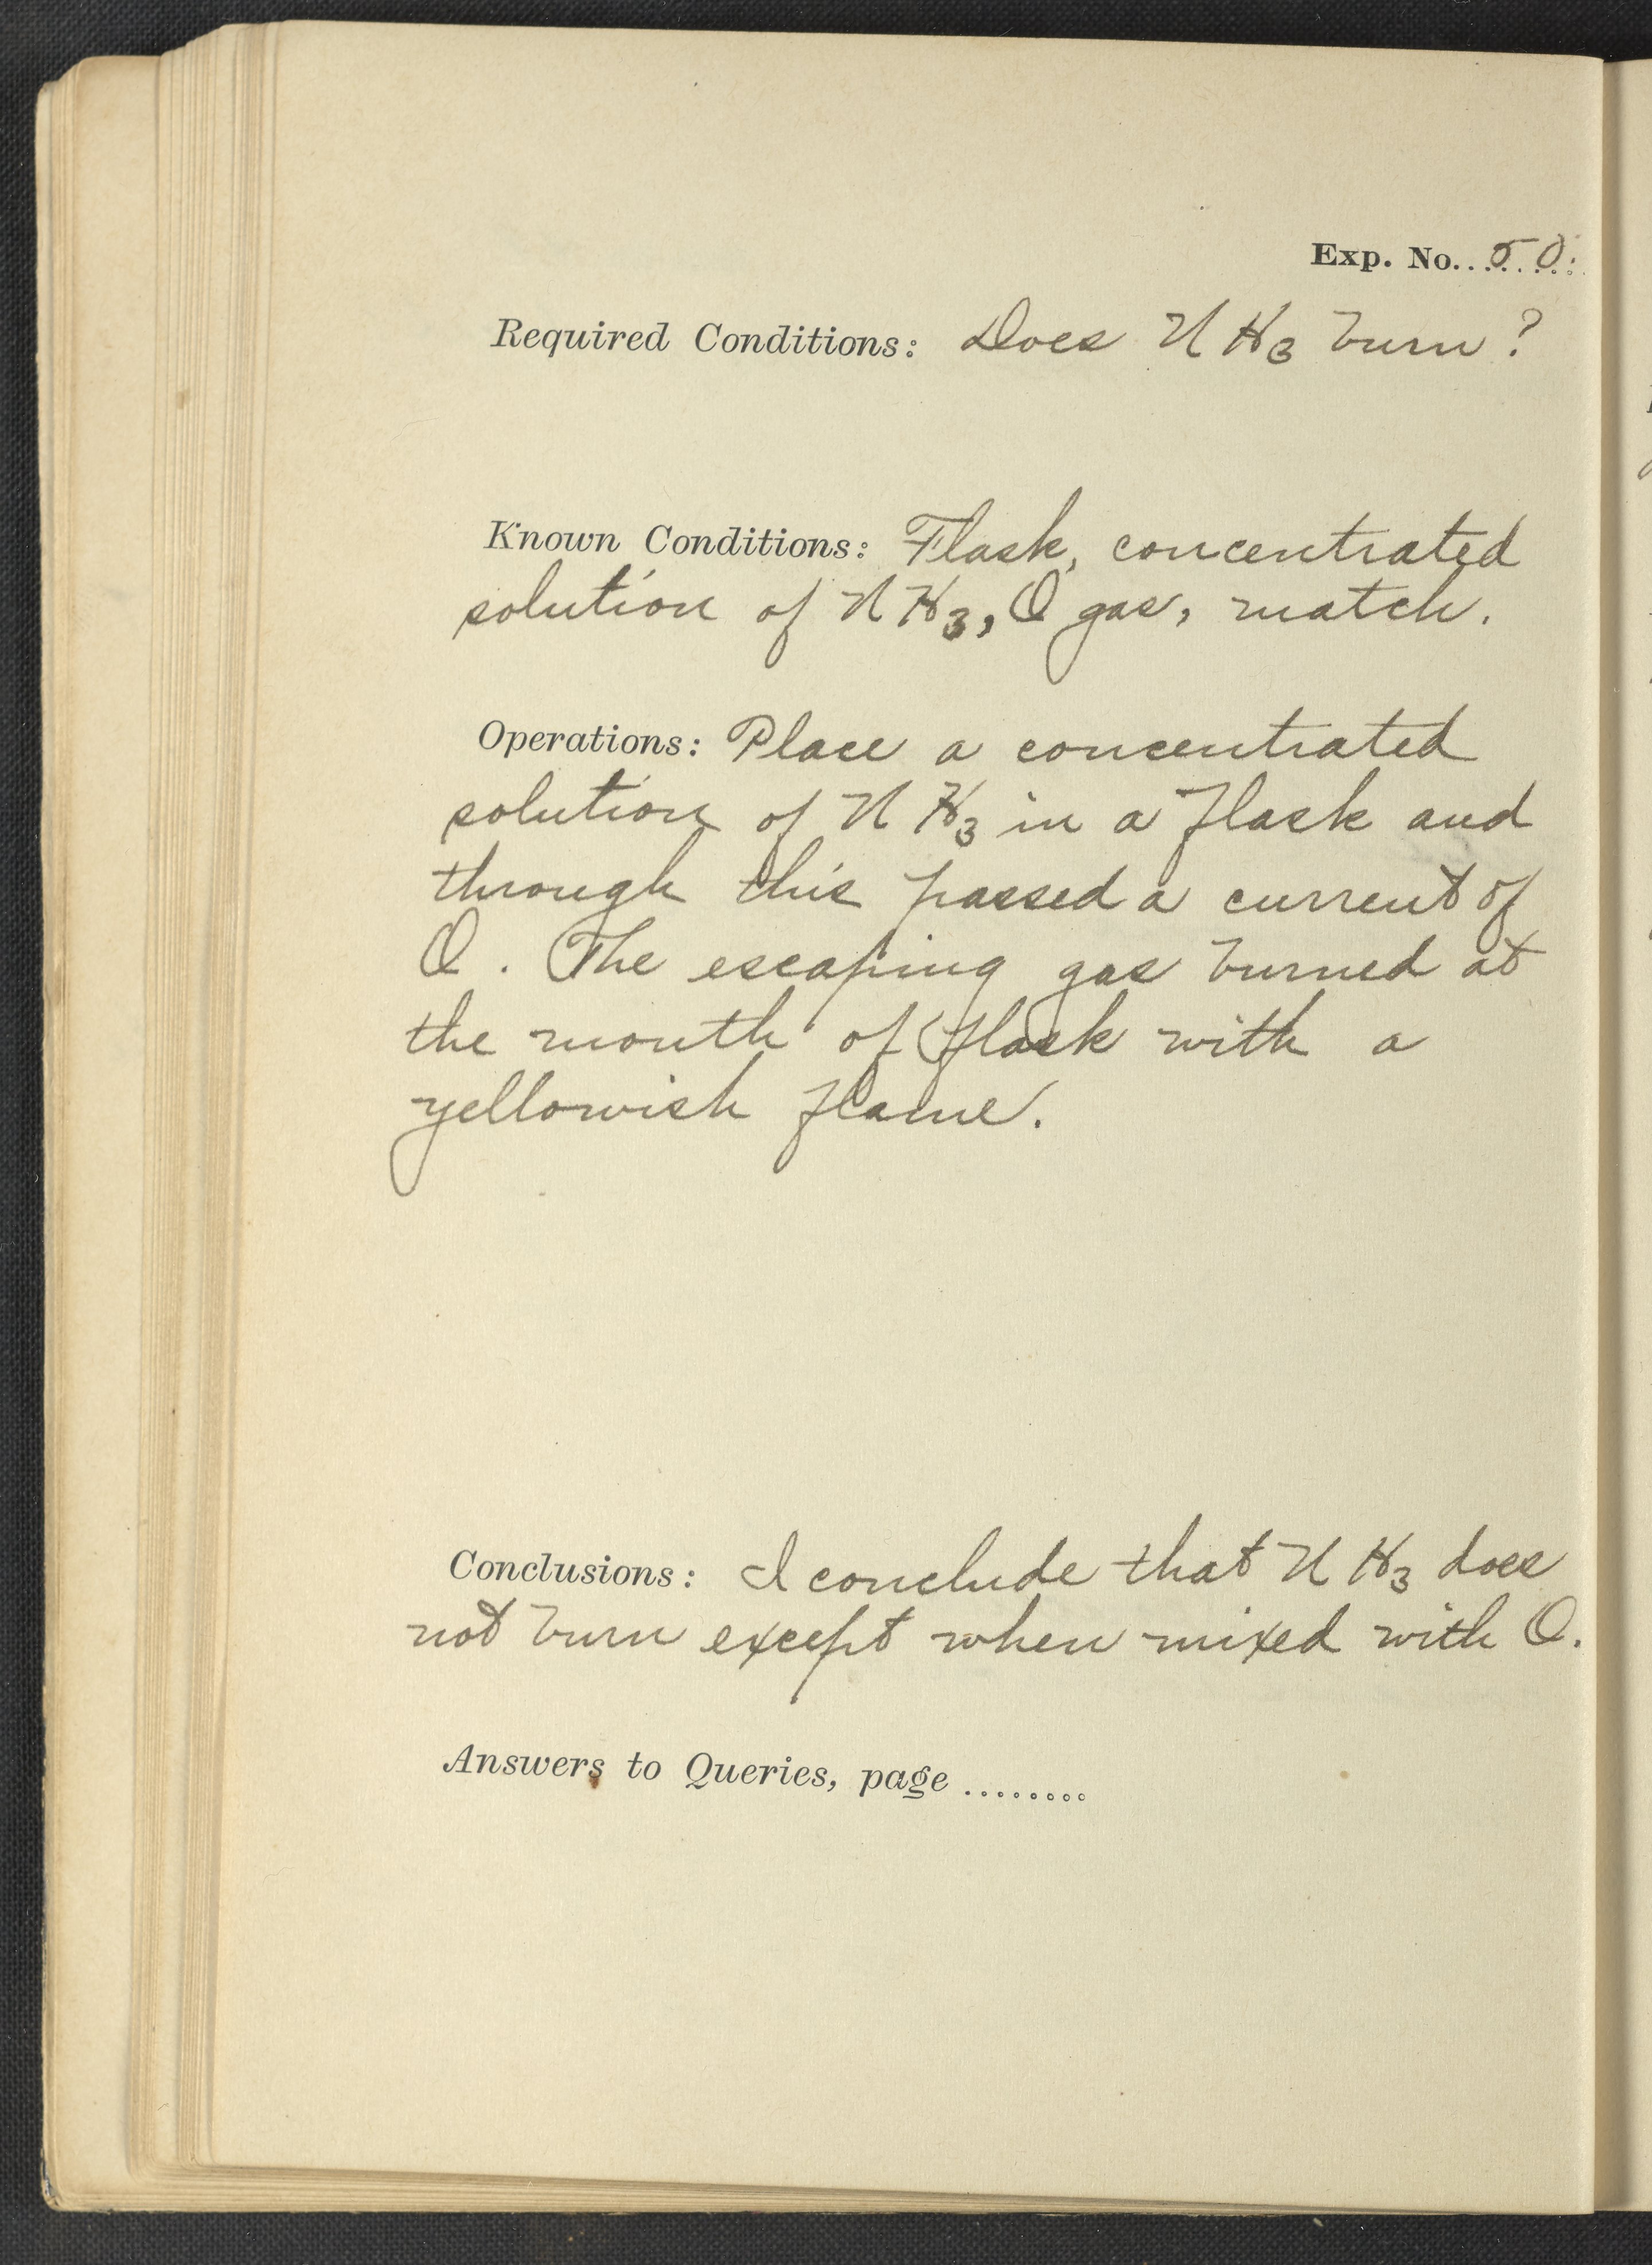 Exp. No. 50.
Required Conditions: Does NH3 burn?
Known Conditions: Flask, concentrated
solution of NH3, O gas, match.
Operations: Place a concentrated
solution of NH3 in a flask and
through this passed a current of
O. The escaping gas burned at
the mouth of flask with a
yellowish flame.
Conclusions: I conclude that NH3 does
not burn except when mixed with O.
Answers to Queries, page ........